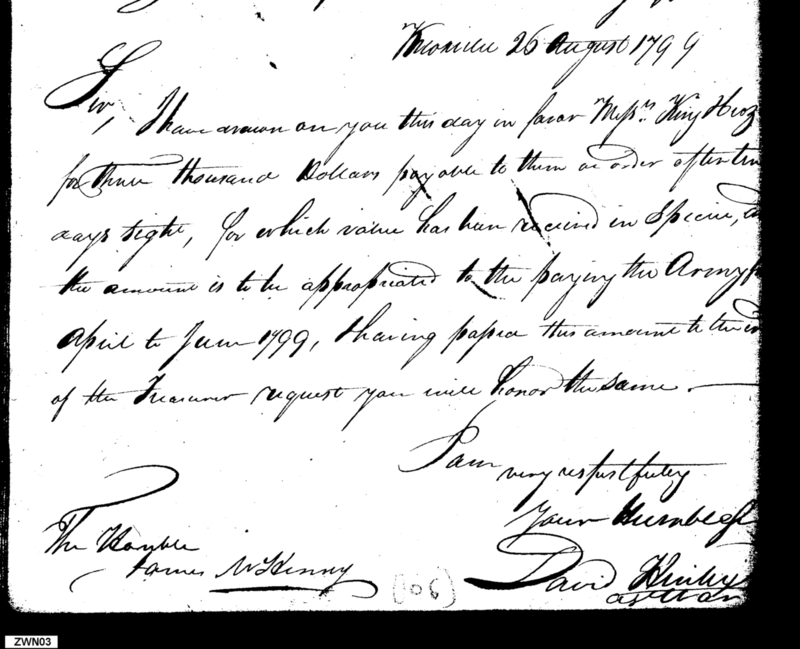 Knoxville 26 August 1799
Sir,
I have drawn on you this day in favor Messrs. King
for three thousand Dollars payable to them or order after ten
days sight, for which value has been received in Specie,
the amount is to be appropriated to the paying the Army
April to June 1799, & having passed this amount to the
of the Treasurer request you will honor the same.
I am
very respectfully
Your Humble
The Honble
James McHenry
David Henley
[06]
ZWN03